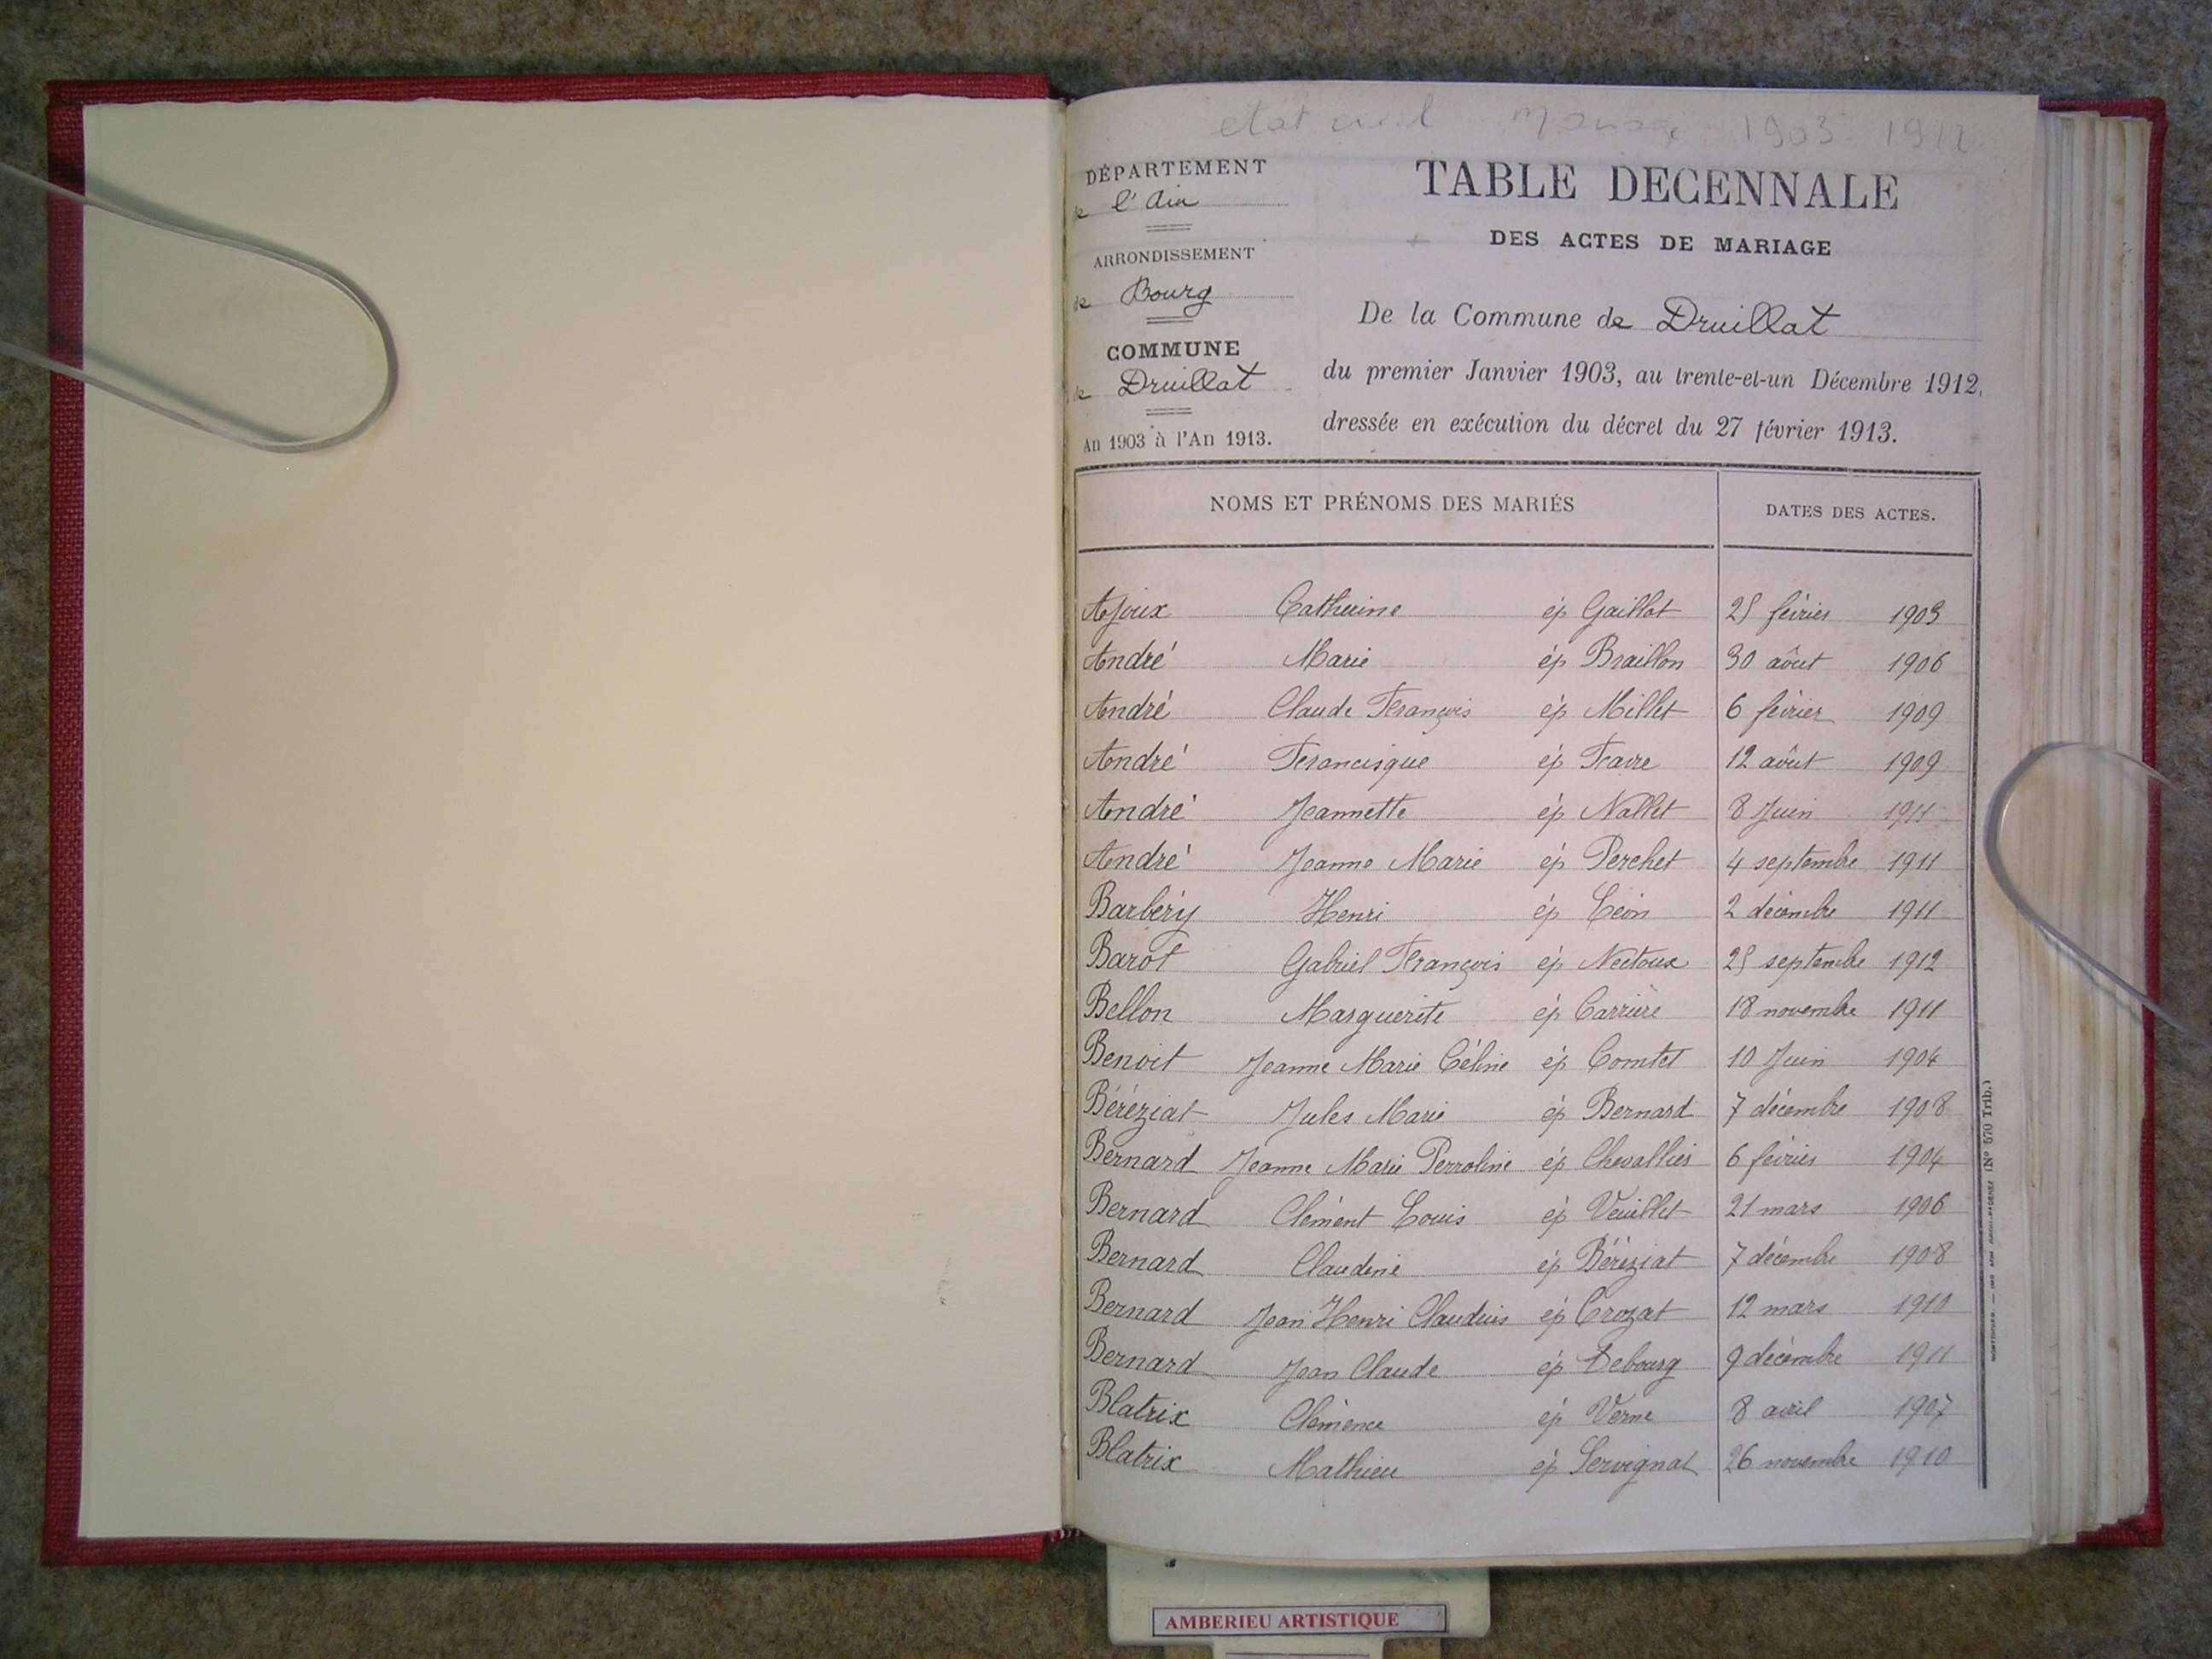 etat civil Mariage 1903 1912
DÉPARTEMENT
de l'Ain
ARRONDISSEMENT
de Bourg
COMMUNE
de Druillat
An 1903 à l'An 1913.
TABLE DECENNALE
DES ACTES DE MARIAGE
De la Commune de Druillat
du premier Janvier 1903, au trente-et-un Décembre 1912,
dressée en exécution du décret du 27 février 1913.
NOMS ET PRÉNOMS DES MARIÉS DATES DES ACTES.
Ajoux Catherine ép Gaillot 25 février 1903
André Marie ép Braillon 30 août 1906
André Claude François ép Millet 6 février 1909
André Francisque ép Favre 12 août 1909
André Jeannette ép Nallet 8 Juin 1911
André Jeanne Marie ép Perchet 4 septembre 1911
Barbéry Henri ép Léon 2 décembre 1911
Barot Gabriel François ép Nectoux 25 septembre 1912
Bellon Marguerite ép Carrière 18 novembre 1911
Benoit Jeanne Marie Céline ép Comtet 10 Juin 1904
Béréziat Jules Marie ép Bernard 7 décembre 1908
Bernard Jeanne Marie Perroline ép Chevallier 6 février 1904
Bernard Clément Louis ép Veuillet 21 mars 1906
Bernard Claudine ép Béréziat 7 décembre 1908
Bernard Jean Henri Claudius ép Crozat 12 mars 1910
Bernard Jean Claude ép Debourg 9 décembre 1911
Blatrix Clémence ép Verne 8 avril 1907
Blatrix Mathieu ép Servignat 26 novembre 1910
(N° 570 Trib.)
AMBERIEU ARTISTIQUE